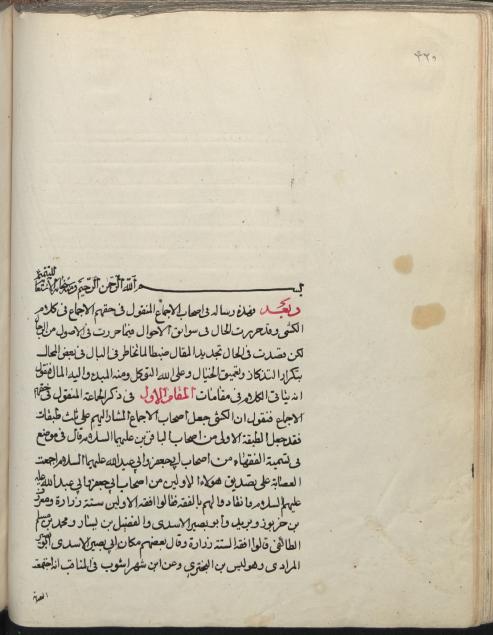 ٤٢٩
بسم الله الرحمن الرحيم وبه
وبعد فهذه رساله فى اصحاب الاجماع المنقول فى حقهم الاجماع فى كلام
الكشى وقد حررت الحال فى سوابق الاحوال فيما حررت فى الاصول من
لكن قصدت فى الحال تجديد المقال ضبطا لما تخاطر فى البال فى بعض المجال
بتكرار التذكار وتعميق الخيال وعلى الله التوكل ومنه المبدء واليه المال فنقول
انه يتاتى الكلام فى مقامات المقام الاول فى ذكر الجماعة المنقول فى حقهم
الاجماع فنقول ان الكشى جعل اصحاب الاجماع المشار اليهم على ثلث طبقات
فقد جعل الطبقة الاولى من اصحاب الباقرين عليهما السلام قال فى موضع
فى تسمية الفقهاء من اصحاب ابى جعفر وابى عبد الله عليهما السلام اجمعت
العصابة على تصديق هؤلاء الاولين من اصحاب ابى جعفر وابى عبد الله
عليهم السلام وانقادوا لهم بالفقه فقالوا افقه الاولين ستة زرارة ومعروف
بن خربوز وبريد وابو بصير الاسدى والفضيل بن يسار ومحمد بن مسلم
الطائفى قالوا افقه الستة زرارة وقال بعضهم مكان ابى بصير الاسدى ابو بصير
المرادى وهو ليث بن البخترى وعن ابن شهراشوب فى المناقب انه اجتمعت
العصابة